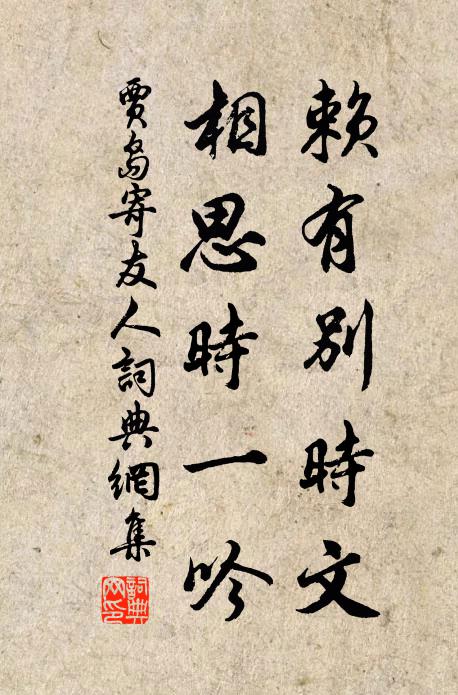 賴有別時文
相思時一吟
賈島寄友人詞典網集
詞典
网印